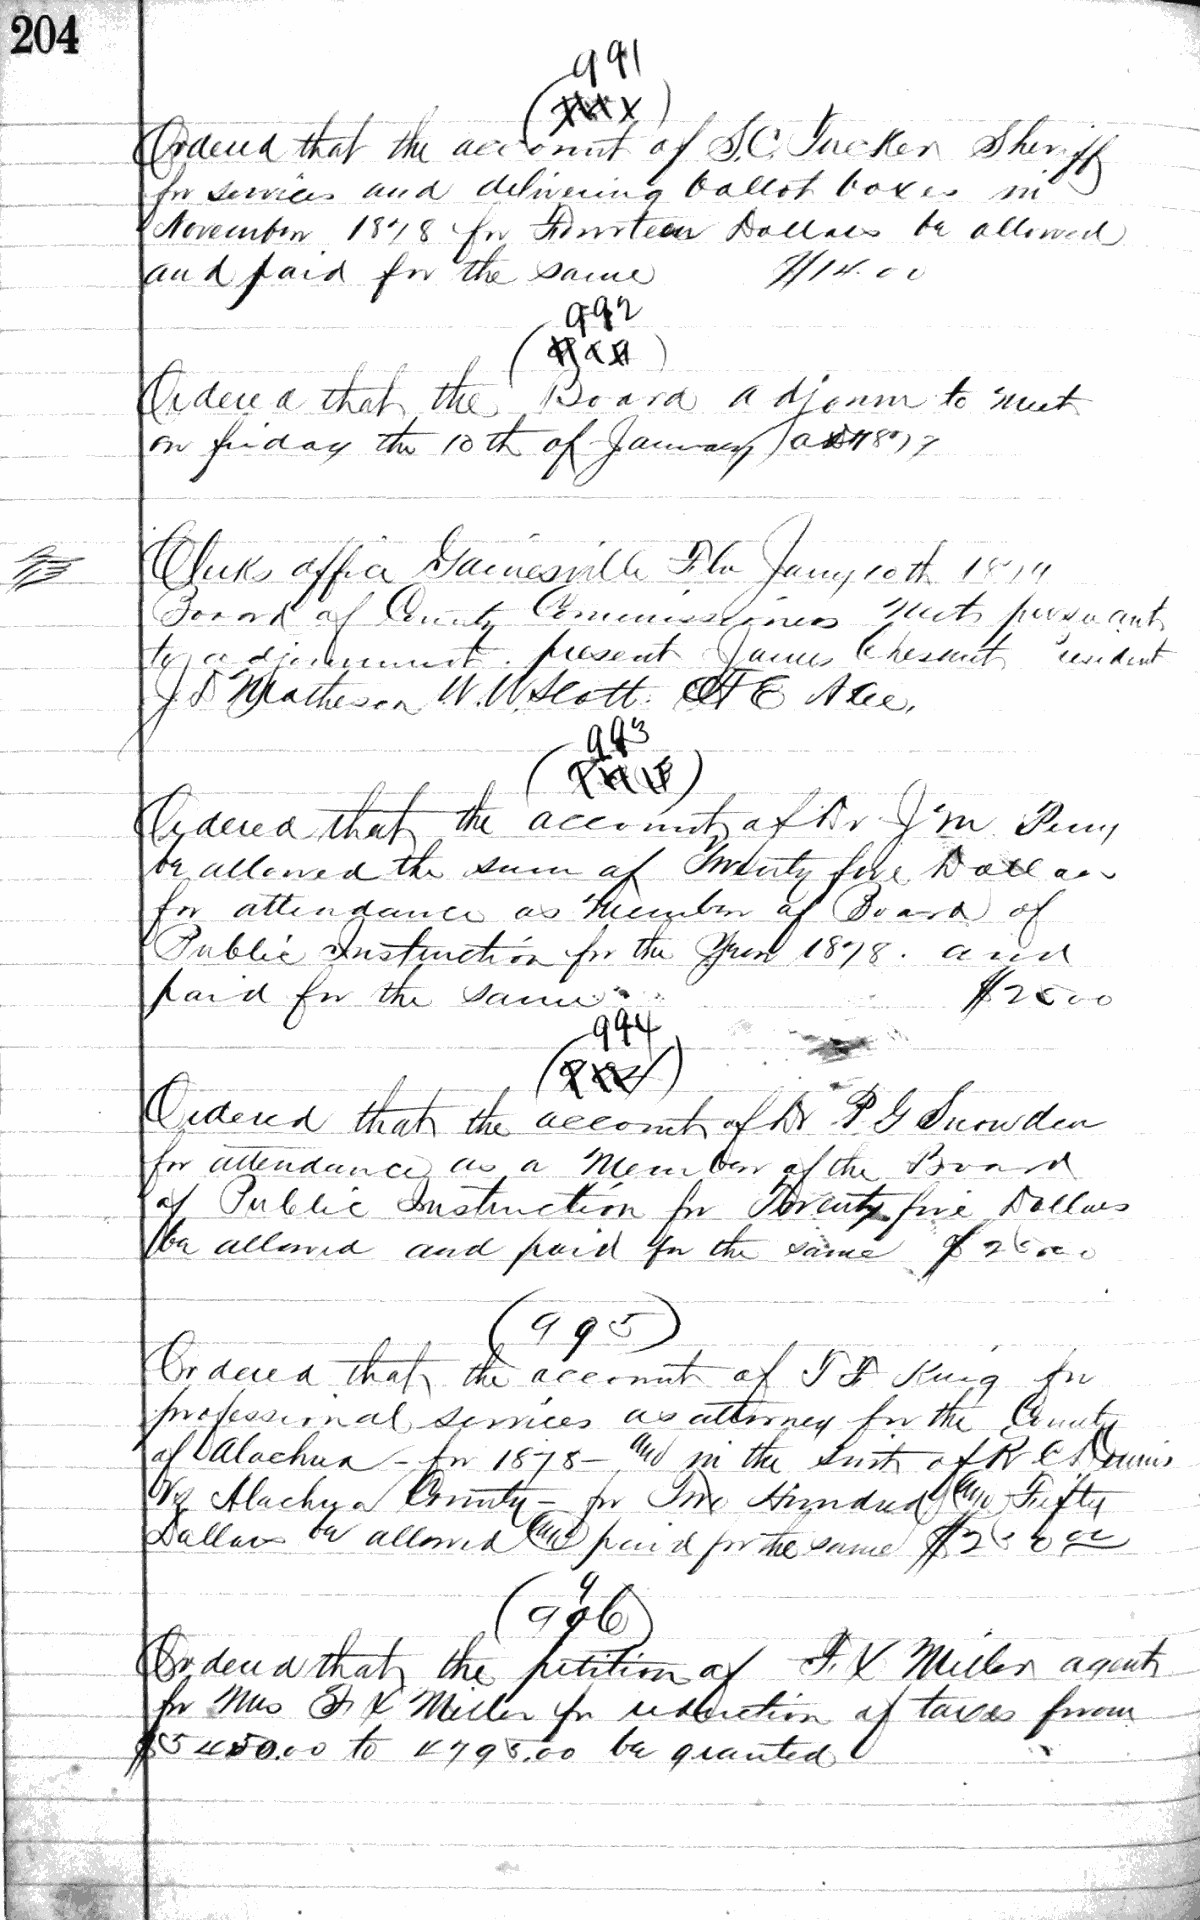 204
991
Ordered that the account of S.C. Tucker Sheriff
for services and delivering ballot boxes in
November 1878 for Fourteen Dollars be allowed
and paid for the same $14.00
992
Ordered that the Board adjourn to meet
on friday the 10th of January AD 1879
Clerks office Gainesville Fla Jany 10th 1879
Board of County Commissioners met pursuant
to adjournment. present James Chesnut resident
J D Matheson W. W. Scott.
993
Ordered that the account of Dr J M Perry
be allowed the sum of Twenty five Dollars
for attendance as Member of Board of
Public Instruction for the Year 1878. and
paid for the same $2500
994
Ordered that the account of Dr P G Snowden
for attendance as a Member of the Board
of Public Instruction for Twenty five Dollars
be allowed and paid for the same $2500
(995)
Ordered that the account of T F King for
professional services as attorney for the County
of Alachua - for 1878 - and in the suit of R C Downis
Vs Alachua County - for Two Hundred and Fifty
Dollars be allowed and paid for the same $250 00
(996)
Ordered that the petition of F. X Miller agent
for Mrs F X Miller for reduction of taxes from
$5450.00 to 4795.00 be granted